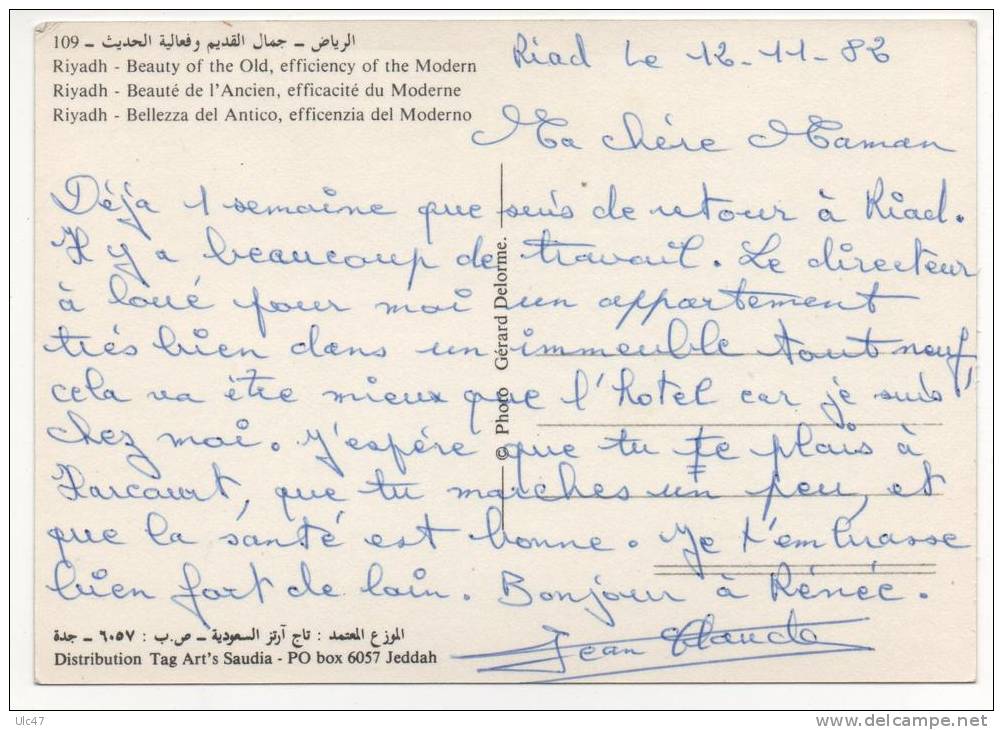 109 ــ الرياض ــ جمال القديم وفعالية الحديث
Riyadh - Beauty of the Old, efficiency of the Modern
Riyadh - Beauté de l'Ancien, efficacité du Moderne
Riyadh - Bellezza del Antico, efficenzia del Moderno
Riad le 12-11-82
Ma chère Maman
Déjà 1 semaine que suis de retour à Riad.
Il y a beaucoup de travail. Le directeur
à loué pour moi un appartement
très bien dans un immeuble tout neuf,
cela va être mieux que l'hotel car je suis
chez moi. J'espére que tu te plais à
Harcourt, que tu marches un peu, et
que la santé est bonne. Je t'embrasse
bien fort de loin. Bonjour à Rénée.
Jean Claude
© Photo Gérard Delorme.
الموزع المعتمد : تاج آرتز السعودية ــ ص.ب : ٦٠٥٧ ــ جدة
Distribution Tag Art's Saudia - PO box 6057 Jeddah
Ulc47
www.delcampe.net